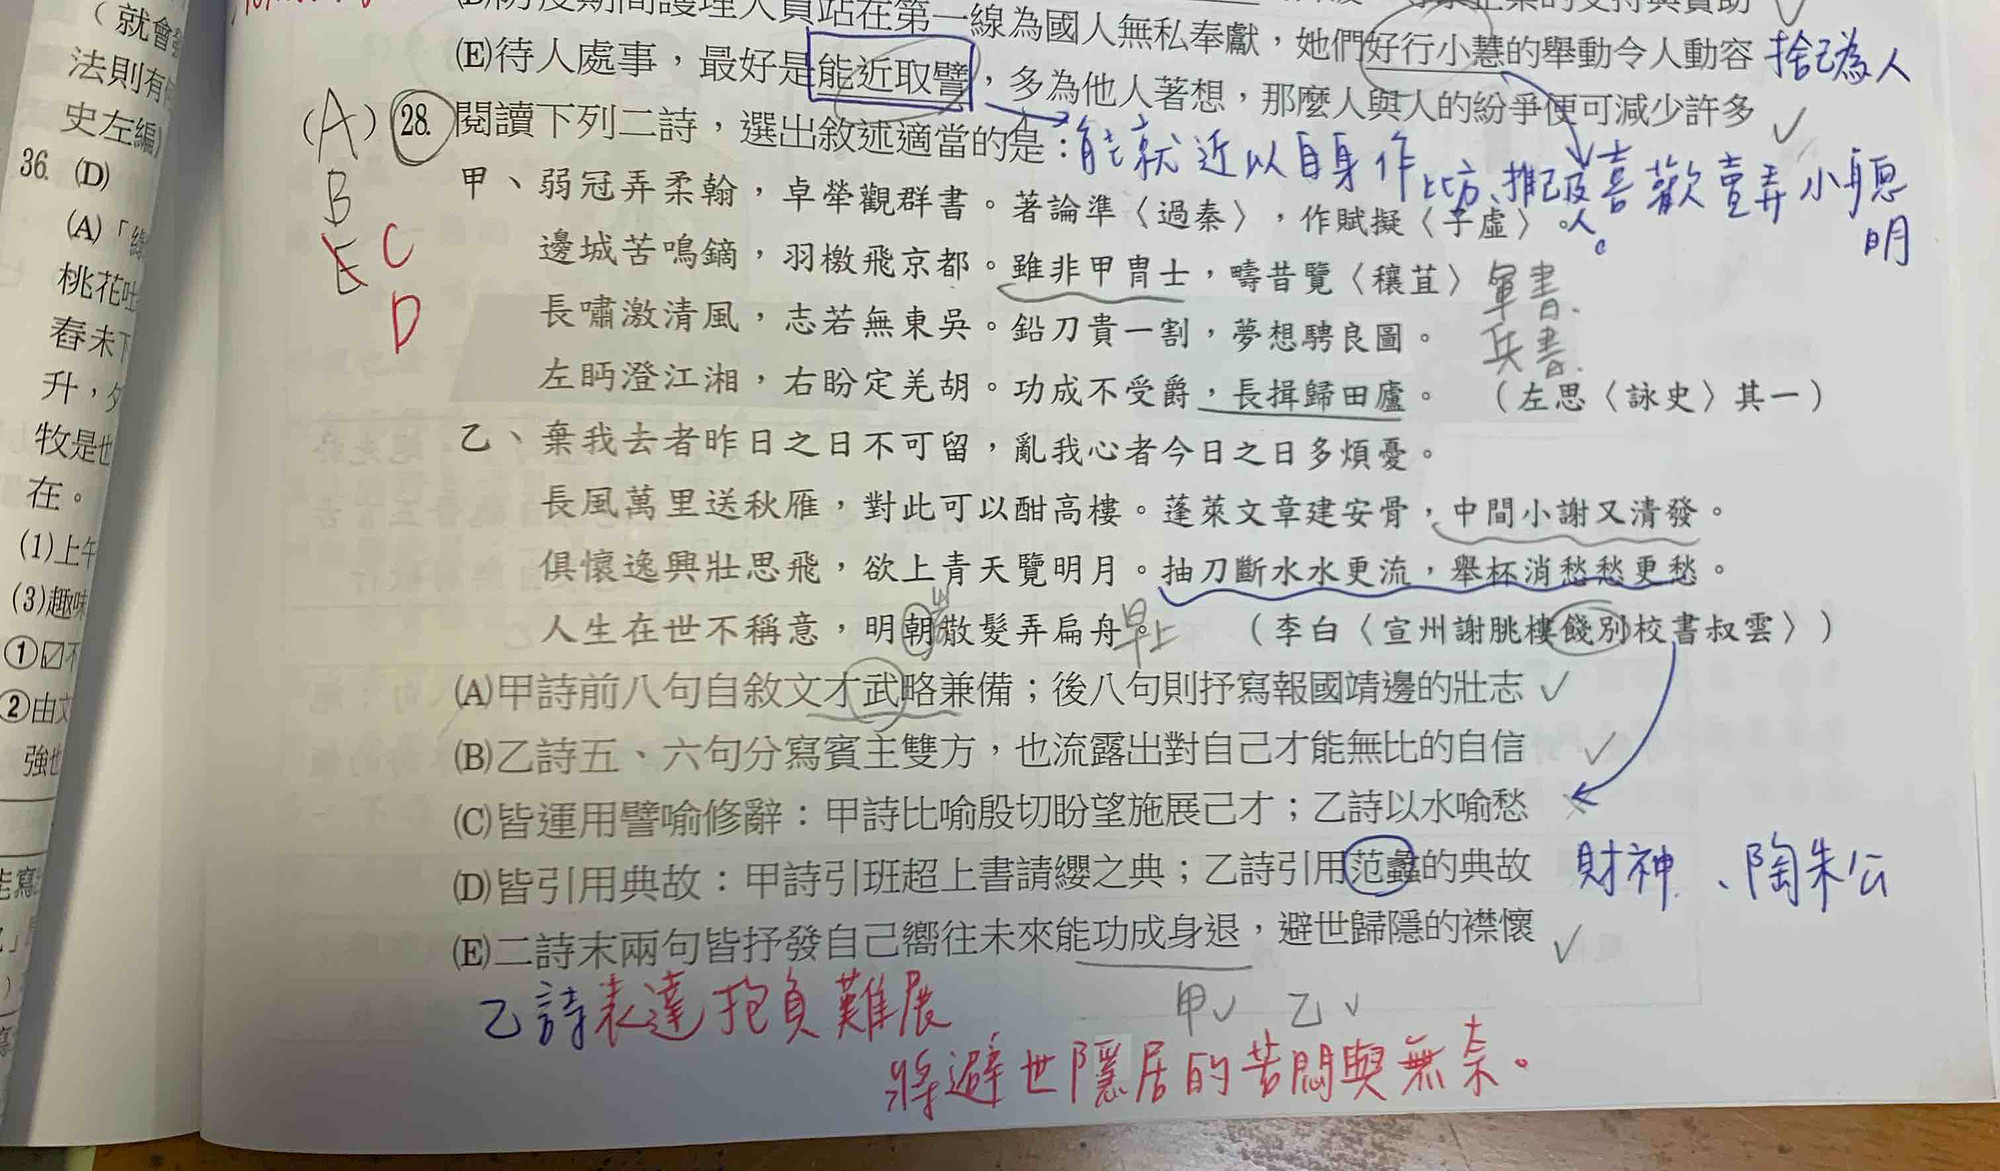 （就會
法則有
史左編）
36. (D)
(A)「
桃花吐
舂未下
升，
牧是也
在。
(1)上午
(3)趣味
①☑不
②由文
強也
在第一線為國人無私奉獻，她們好行小慧的舉動令人動容 捨己為人
(E)待人處事，最好是能近取譬，多為他人著想，那麼人與人的紛爭便可減少許多 ✓
(A) 28. 閱讀下列二詩，選出敘述適當的是：能就近以自身作比方、推己及人。 喜歡賣弄小聰明
B
E C
D
甲、弱冠弄柔翰，卓犖觀群書。著論準〈過秦〉，作賦擬〈子虛〉。
邊城苦鳴鏑，羽檄飛京都。雖非甲冑士，疇昔覽〈穰苴〉 軍書.
長嘯激清風，志若無東吳。鉛刀貴一割，夢想騁良圖。 兵書.
左眄澄江湘，右盼定羌胡。功成不受爵，長揖歸田廬。（左思〈詠史〉其一）
乙、棄我去者昨日之日不可留，亂我心者今日之日多煩憂。
長風萬里送秋雁，對此可以酣高樓。蓬萊文章建安骨，中間小謝又清發。
俱懷逸興壯思飛，欲上青天覽明月。抽刀斷水水更流，舉杯消愁愁更愁。
人生在世不稱意，明朝散髮弄扁舟。早上（李白〈宣州謝朓樓餞別校書叔雲〉）
(A)甲詩前八句自敘文才武略兼備；後八句則抒寫報國靖邊的壯志 ✓
(B)乙詩五、六句分寫賓主雙方，也流露出對自己才能無比的自信 ✓
(C)皆運用譬喻修辭：甲詩比喻殷切盼望施展己才；乙詩以水喻愁
(D)皆引用典故：甲詩引班超上書請纓之典；乙詩引用范蠡的典故 財神、陶朱公
(E)二詩末兩句皆抒發自己嚮往未來能功成身退，避世歸隱的襟懷 ✓
乙詩表達抱負難展 甲✓ 乙✓
將避世隱居的苦悶與無奈。